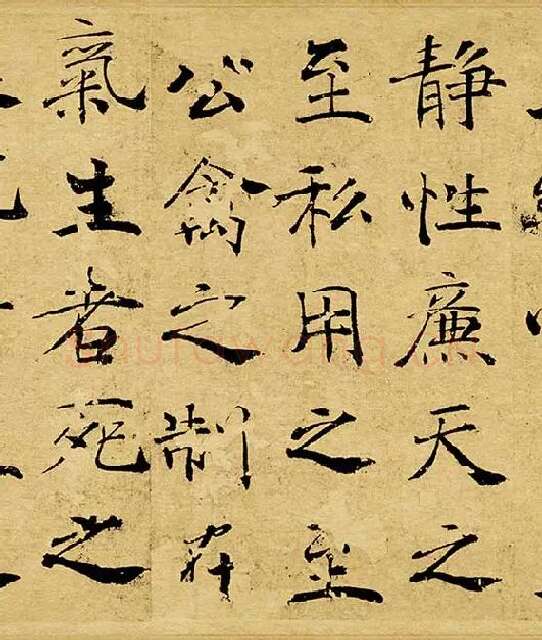 靜性廉天之
至私用之至
公禽之制在
氣生者死之